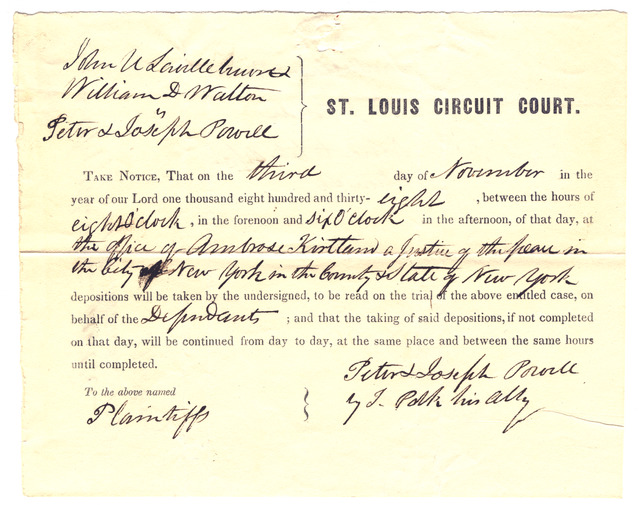 John U
William D Walton
"
Peter & Joseph Powell
ST. LOUIS CIRCUIT COURT.
TAKE NOTICE, That on the third day of November in the
year of our Lord one thousand eight hundred and thirty-eight, between the hours of
eight O'clock, in the forenoon and six O'clock in the afternoon, of that day, at
the office of Ambrose Kirtland a Justice of the peace in
the City of New York in the County & State of New York
depositions will be taken by the undersigned, to be read on the trial of the above entitled case, on
behalf of the Defendants; and that the taking of said depositions, if not completed
on that day, will be continued from day to day, at the same place and between the same hours
until completed.
Peter & Joseph Powell
by T. Polk his Atty
To the above named
Plaintiffs